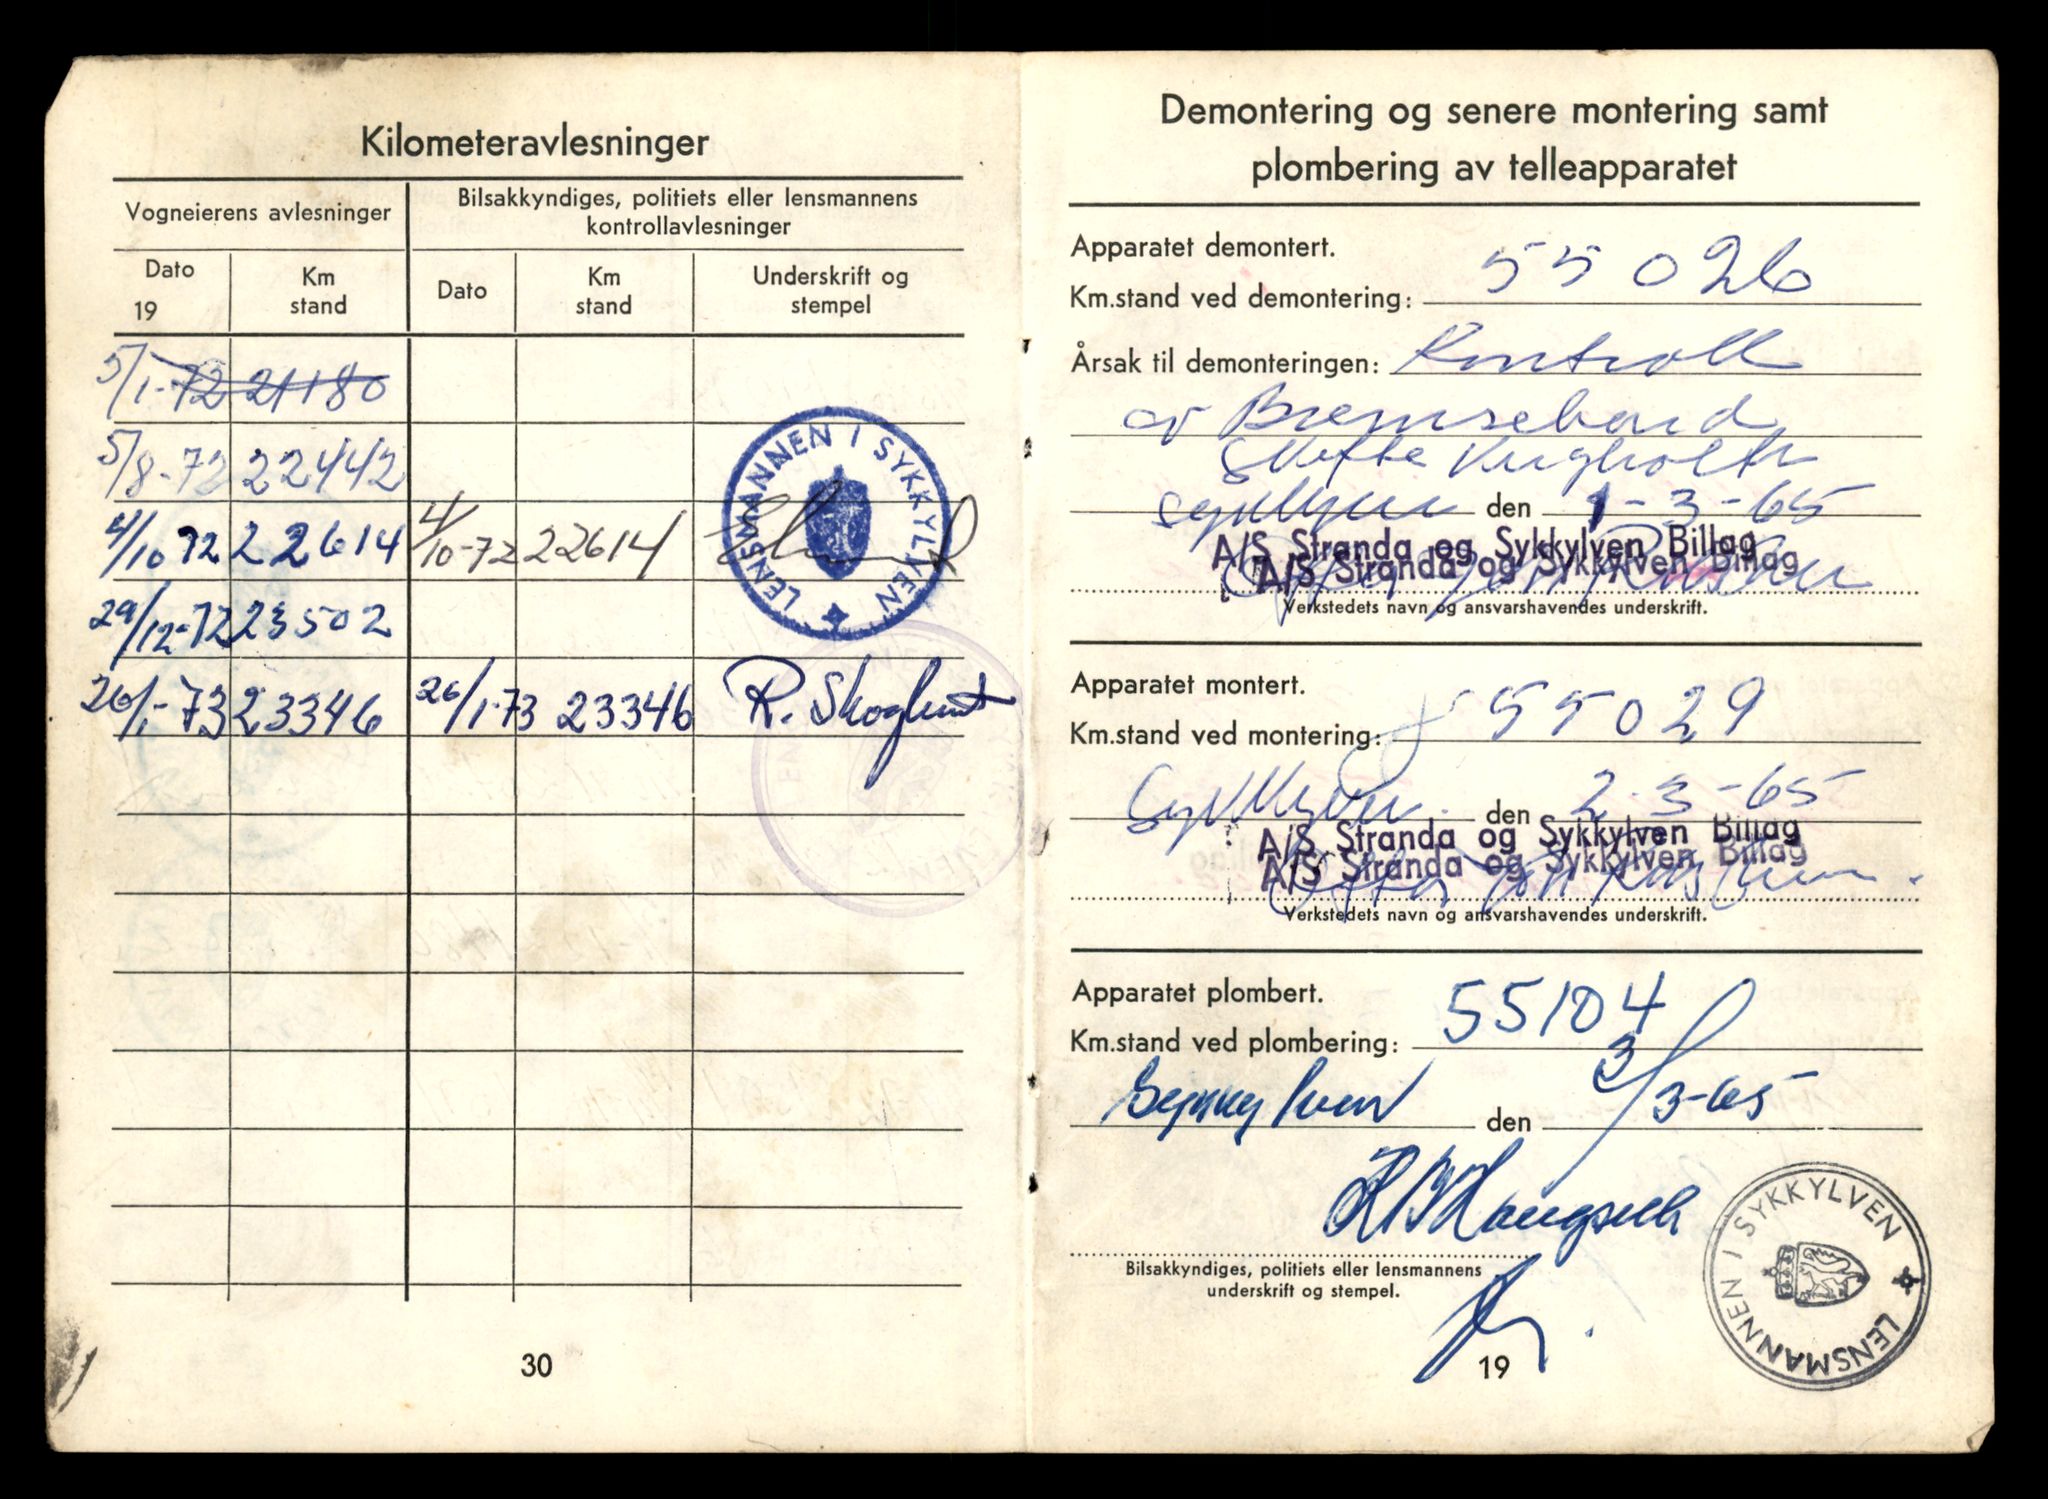 Kilometeravlesninger
Vogneierens avlesninger
Bilsakkyndiges, politiets eller lensmannens
kontrollavlesninger
Dato
19
Km
stand
Dato
Km
stand
Underskrift og
stempel
5/1-72 21180
5/8-72 22442
4/10 72 22614 4/10-72 22614
LENSMANNEN I SYKKYLVEN
29/12-72 23502
26/1-73 23346 26/1-73 23346 R. Skoglund
30
Demontering og senere montering samt
plombering av telleapparatet
Apparatet demontert.
Km.stand ved demontering: 55026
Årsak til demonteringen: Kontroll
av Bremsebond
Skifte
Sykkylven den 1-3-65
A/S Stranda og Sykkylven Billag
A/S Stranda og Sykkylven Billag
Verkstedets navn og ansvarshavendes underskrift.
Apparatet montert.
Km.stand ved montering: 55029
Sykkylven den 2-3-65
A/S Stranda og Sykkylven Billag
A/S Stranda og Sykkylven Billag
Verkstedets navn og ansvarshavendes underskrift.
Apparatet plombert.
Km.stand ved plombering: 55104
Sykkylven den 3/3-65
Bilsakkyndiges, politiets eller lensmannens
underskrift og stempel.
LENSMANNEN I SYKKYLVEN
19